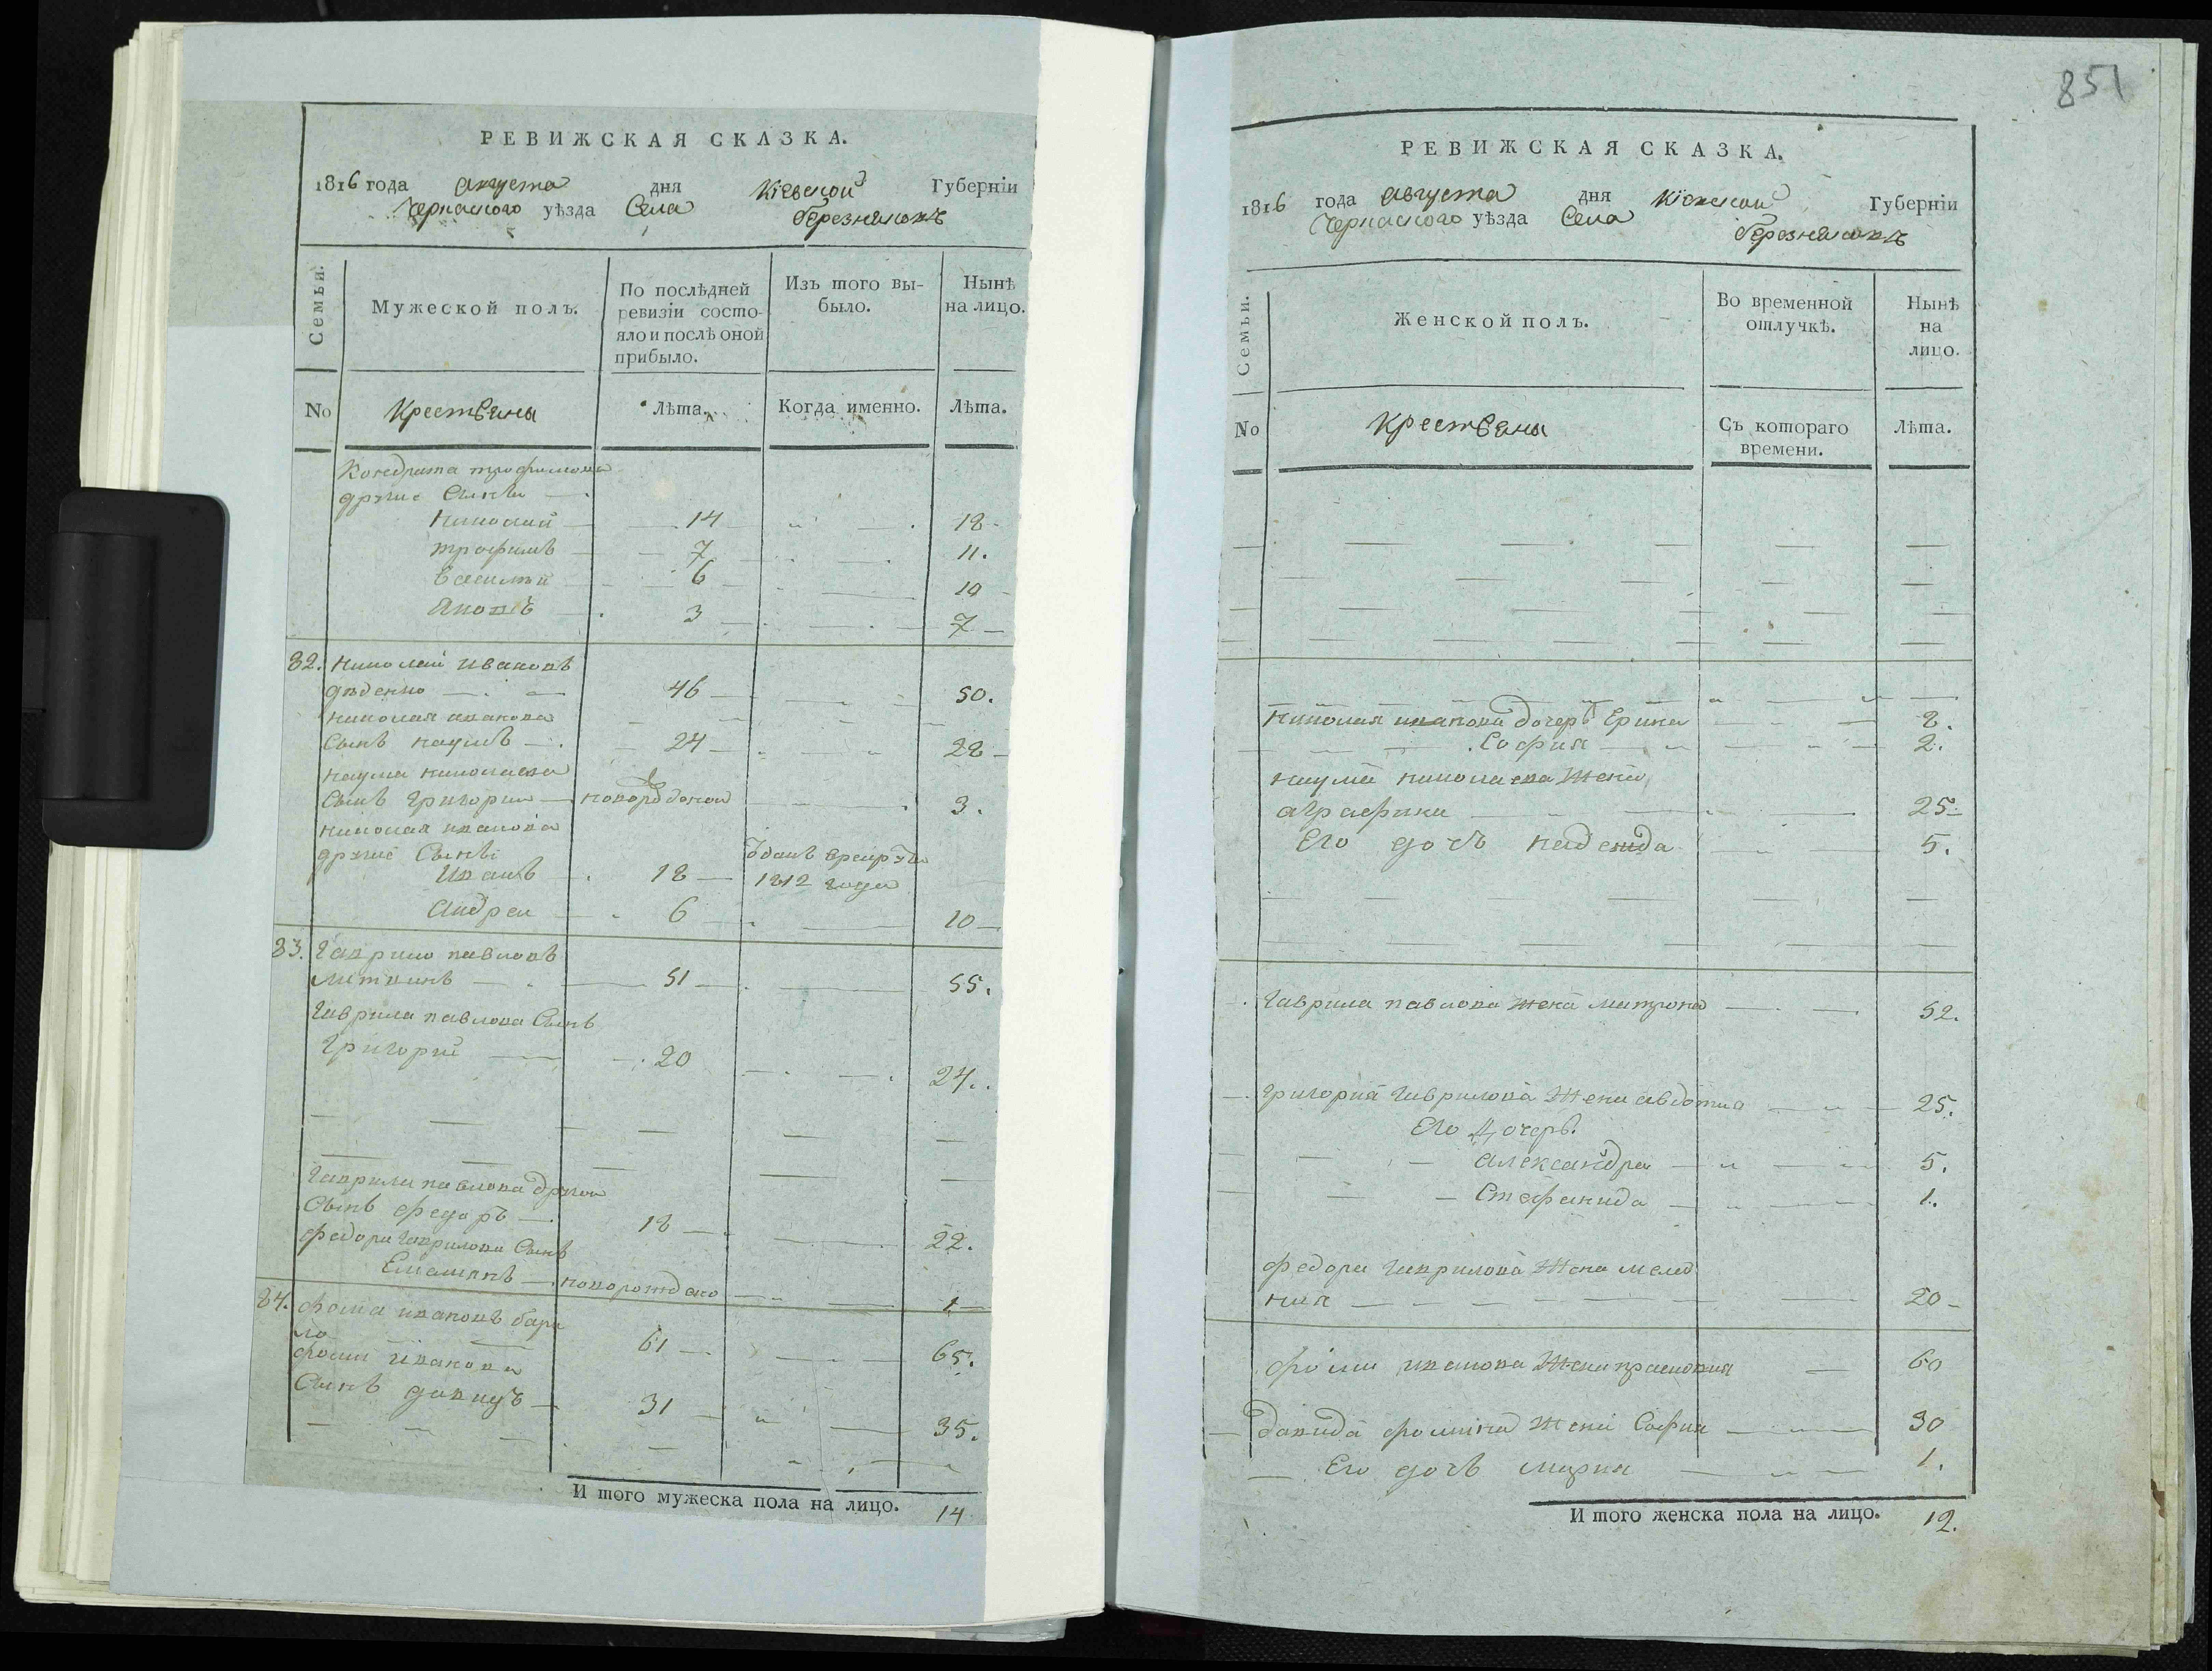 РЕВИЖСКАЯ СКАЗКА.
1816 года августа дня Кіевской Губерніи
Черкаского уѣзда Села Березняковъ
Семьи.
Мужеской полъ.
По послѣдней ревизіи состояло и послѣ оной прибыло.
Изъ того выбыло.
Нынѣ на лицо.
No Крестьяны Лѣта. Когда именно. Лѣта.
Кондрата трофимова
другие Сынъи
Николай 14 18
трофимъ 7 11.
Василий 6 10
Яковъ 3 7
82. Николай Ивановъ
46 50.
Николая иванова
Сынъ наумъ 24 28
наума николаева
Сынъ григорий новорожденой 3.
николая иванова
другие Сынъи
Иванъ 18 1812 года
Андрей 6 10
83. Гаврило павловъ
51 55.
Гаврила павлова Сынъ
Григорий 20 24.
Гаврила павлова другой
Сынъ федоръ 18 22.
федора Гаврилова Сынъ
Емельянъ новорожденой 1
84. фома ивановъ
61 65.
фомы иванова
Сынъ давидъ 31 35.
И того мужеска пола на лицо. 14
851
РЕВИЖСКАЯ СКАЗКА.
1816 года августа дня Кіевской Губерніи
Черкаского уѣзда Села Березняковъ
Семьи.
Женской полъ.
Во временной отлучкѣ.
Нынѣ на лицо.
No Крестьяны Съ котораго времени. Лѣта.
Николая иванова дочерѣ Ерина 8.
София 2.
наума николаева жена
аграфина 25
Его дочъ надежда 5.
Гаврила павлова жена матрона 52.
григория Гаврилова жена авдотия 25.
Его дочерѣ.
александра 5.
Стефанида 1.
федора Гаврилова жена мела
ния 20
фомы иванова жена прасковия 60
давида фомина жена София 30
Его дочъ мария 1.
И того женска пола на лицо. 12.